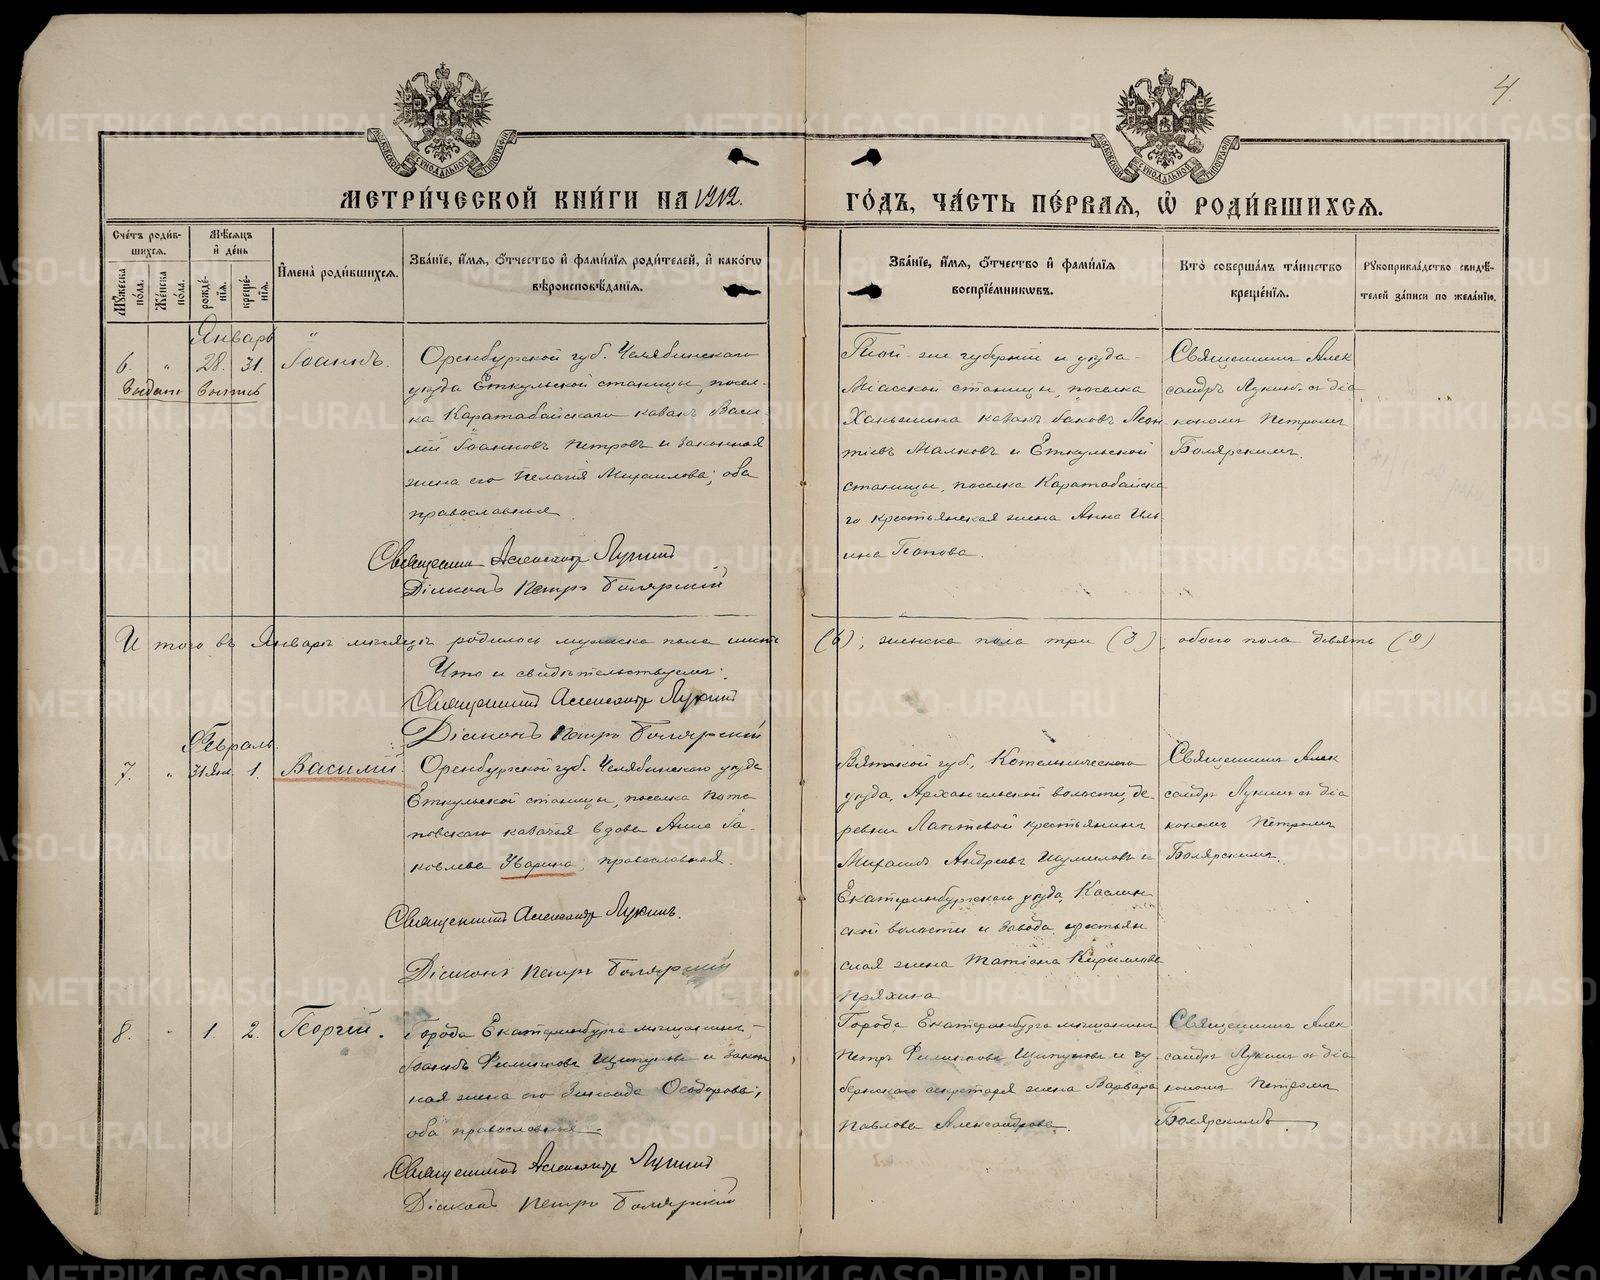 4.
МЕТРИ́ЧЕСКОЙ КНИ́ГИ НА 1912.
ГО́ДЪ, ЧА́СТЬ ПЕ́РВАЯ, Ѡ҆ РОДИ́ВШИХСѦ.
Сче́тъ роди́в-
шихся.
Мꙋ́жеска по́ла.
Же́нска по́ла.
Мѣ́сяцъ
и҆ де́нь
рожде́-
нїѧ.
креще́-
нїѧ.
И҆мена̀ роди́вшихсѧ.
Зва́нїе, и҆́мѧ, ѻ҆́тчество и҆ фами́лїѧ роди́телей, и҆ како́гѡ
вѣроисповѣ́данїѧ.
Зва́нїе, и҆́мѧ, ѻ҆́тчество и҆ фами́лїѧ
воспрїе́мникѡвъ.
Кто̀ соверша́лъ та́инство
креще́нїѧ.
Рꙋкоприкла́дство свидѣ́-
телей за́писи по жела́нїю.
Январь
6. " 28. 31. Іоаннъ.
Выдана Выпись
Оренбургской губ. Челябинскаго
уѣзда Еткульской станицы, посел-
ка Каратабайскаго казакъ Васи
лій Іоанновъ Петровъ и законная
жена его Пелагія Михаилова; оба
православные
Священникъ Александръ Лукинъ
Діаконъ Петръ Боярскій
Той-же губерніи и уѣзда-
Міасской станицы, поселка
казакъ Іаковъ Леон
тіевъ Малковъ и Еткульской
станицы, поселка Каратабайска
го крестьянская жена Анна Иль
ина Попова.
Священникъ Алек
сандръ Лукинъ съ діа
кономъ Петромъ
Боярскимъ.
Итого въ Январѣ мѣсяцѣ родилось мужска пола шесть (6), женска пола три (3), обоего пола девять (9)
Что и свидѣтельствуемъ:
Священникъ Александръ Лукинъ
Діаконъ Петръ Боярскій
Февраль.
7. " 31 Янв. 1. Василій.
Оренбургской губ. Челябинскаго уѣзда
Еткульской станицы, поселка Пота
повскаго казачья вдова Анна Іа-
ковлева Уварина, православная.
Священникъ Александръ Лукинъ.
Діаконъ Петръ Боярскій
Вятской губ., Котельническаго
уѣзда, Архангельской волости, де-
ревни Лаптевой крестьянинъ
Михаилъ Андреевъ Шумиловъ и
Екатеринбургскаго уѣзда, Каслин
ской волости и завода крестьян
ская жена Татіана Кирилова
Пряхина
Священникъ Алек
сандръ Лукинъ съ діа
кономъ Петромъ
Боярскимъ.
8. " 1. 2. Георгій.
Города Екатеринбурга мѣщанинъ-
Іоаннъ Филиповъ Щипуновъ и закон
ная жена его Зинаида Ѳеодорова;
оба православные.
Священникъ Александръ Лукинъ
Діаконъ Петръ Боярскій
Города Екатеринбурга мѣщанинъ
Петръ Филиповъ Щипуновъ и гу
бернскаго секретаря жена Варвара
Павлова Александрова.
Священникъ Алек
сандръ Лукинъ съ діа
кономъ Петромъ
Боярскимъ
METRIKI.GASO-URAL.RU